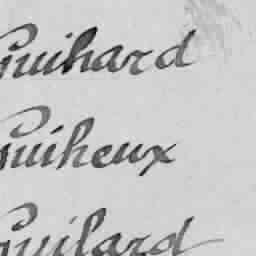 Guihard
Guiheux
Guilard